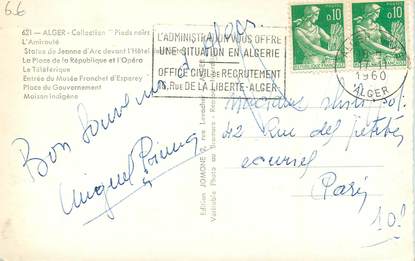 66
621 - ALGER - Collection "Pieds noirs"
L'Amirauté
Statue de Jeanne d'Arc devant l'Hôtel
La Place de la République et l'Opéra
Le Téléférique
Entrée du Musée Franchet d'Esperey
Place du Gouvernement
Maison indigène
L'ADMINISTRATION VOUS OFFRE
UNE SITUATION EN ALGERIE
OFFICE CIVIL DE RECRUTEMENT
RUE DE LA LIBERTE-ALGER
0,10
0,10
1960
ALGER
Bon Souvenir d'Alger
Miguel
Edition JOMONE
Véritable Photo au Bromure
42 Rue des petites
Paris
10e